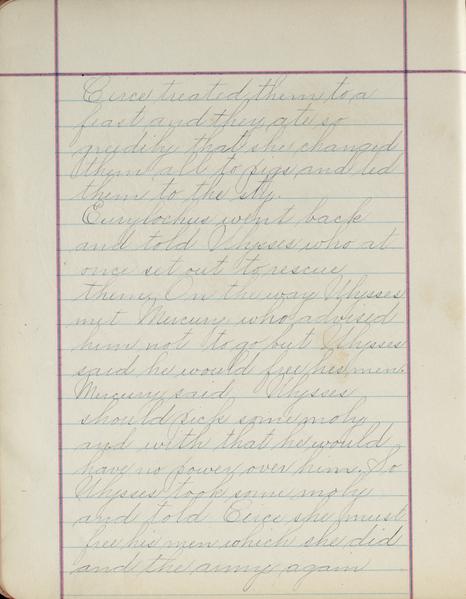 Circe treated them to a
feast and they ate so
greedily that she changed
them all to pigs and led
them to the sty.
Eurylochus went back
and told Ulysses who at
once set out to rescue
them. On the way Ulysses
met Mercury who advised
him not to go but Ulysses
said he would free his men.
Mercury said Ulysses
should pick some moly
and with that he would
have no power over him. So
Ulysses took some moly
and told Circe she must
free his men which she did
and the army again